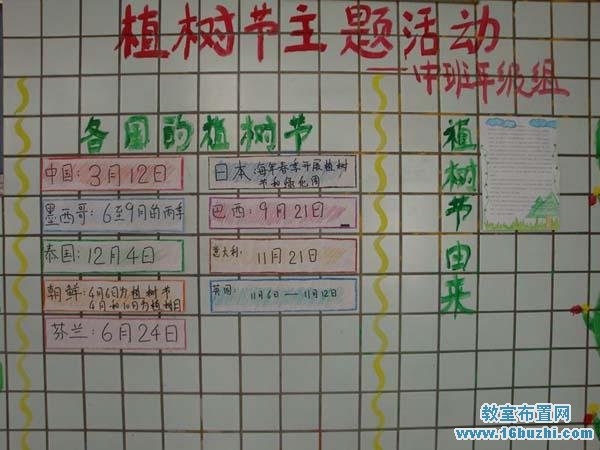 植树节主题活动
—中班年级组
各国的植树节
中国：3月12日
墨西哥：6至9月的雨季
泰国：12月4日
朝鲜：4月6日为植树节
芬兰：6月24日
日本：每年春季开展植树
节和绿化周
巴西：9月21日
意大利：11月21日
英国：11月6日——11月12日
植树节由来
教室布置网
www.16buzhi.com